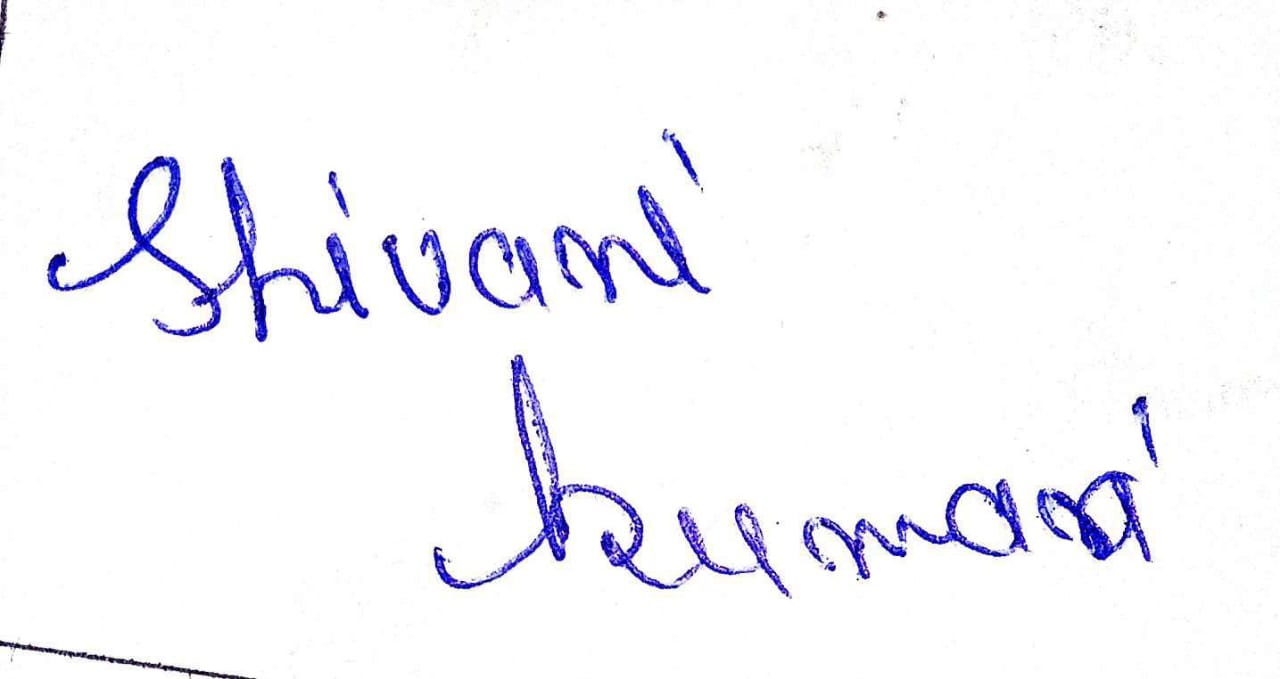 Shivani
Kumari